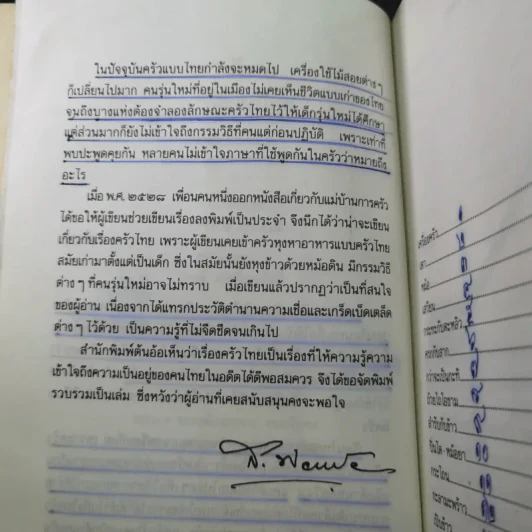 ในปัจจุบันครัวแบบไทยกำลังจะหมดไป เครื่องใช้ไม้สอยต่าง ๆ
ก็เปลี่ยนไปมาก คนรุ่นใหม่ที่อยู่ในเมืองไม่เคยเห็นชีวิตแบบเก่าของไทย
จนถึงบางแห่งต้องจำลองลักษณะครัวไทยไว้ให้เด็กรุ่นใหม่ได้ศึกษา
แต่ส่วนมากก็ยังไม่เข้าใจถึงกรรมวิธีที่คนแต่ก่อนปฏิบัติ เพราะเท่าที่
พบปะพูดคุยกัน หลายคนไม่เข้าใจภาษาที่ใช้พูดกันในครัวว่าหมายถึง
อะไร
เมื่อ พ.ศ. ๒๕๒๘ เพื่อนคนหนึ่งออกหนังสือเกี่ยวกับแม่บ้านการครัว
ได้ขอให้ผู้เขียนช่วยเขียนเรื่องลงพิมพ์เป็นประจำ จึงนึกได้ว่าน่าจะเขียน
เกี่ยวกับเรื่องครัวไทย เพราะผู้เขียนเคยเข้าครัวหุงหาอาหารแบบครัวไทย
สมัยเก่ามาตั้งแต่เป็นเด็ก ซึ่งในสมัยนั้นยังหุงข้าวด้วยหม้อดิน มีกรรมวิธี
ต่าง ๆ ที่คนรุ่นใหม่อาจไม่ทราบ เมื่อเขียนแล้วปรากฏว่าเป็นที่สนใจ
ของผู้อ่าน เนื่องจากได้แทรกประวัติตำนานความเชื่อและเกร็ดเบ็ดเตล็ด
ต่าง ๆ ไว้ด้วย เป็นความรู้ที่ไม่จืดชืดจนเกินไป
สำนักพิมพ์ต้นอ้อเห็นว่าเรื่องครัวไทยเป็นเรื่องที่ให้ความรู้ความ
เข้าใจถึงความเป็นอยู่ของคนไทยในอดีตได้ดีพอสมควร จึงได้ขอจัดพิมพ์
รวบรวมเป็นเล่ม ซึ่งหวังว่าผู้อ่านที่เคยสนับสนุนคงจะพอใจ
เครื่องครัว ๑
เตา ๒
หม้อ
เตรียบ
กระชอนกับตะหลิว
ครกกับสาก
กว่าจะเป็นกะทิ
ถ้วยโถโอชาม
สำรับกับข้าว
ปิ่นโต-หม้ออวย ๑๐
กระโถน ๑๑
กะลามะพร้าว ๑๒